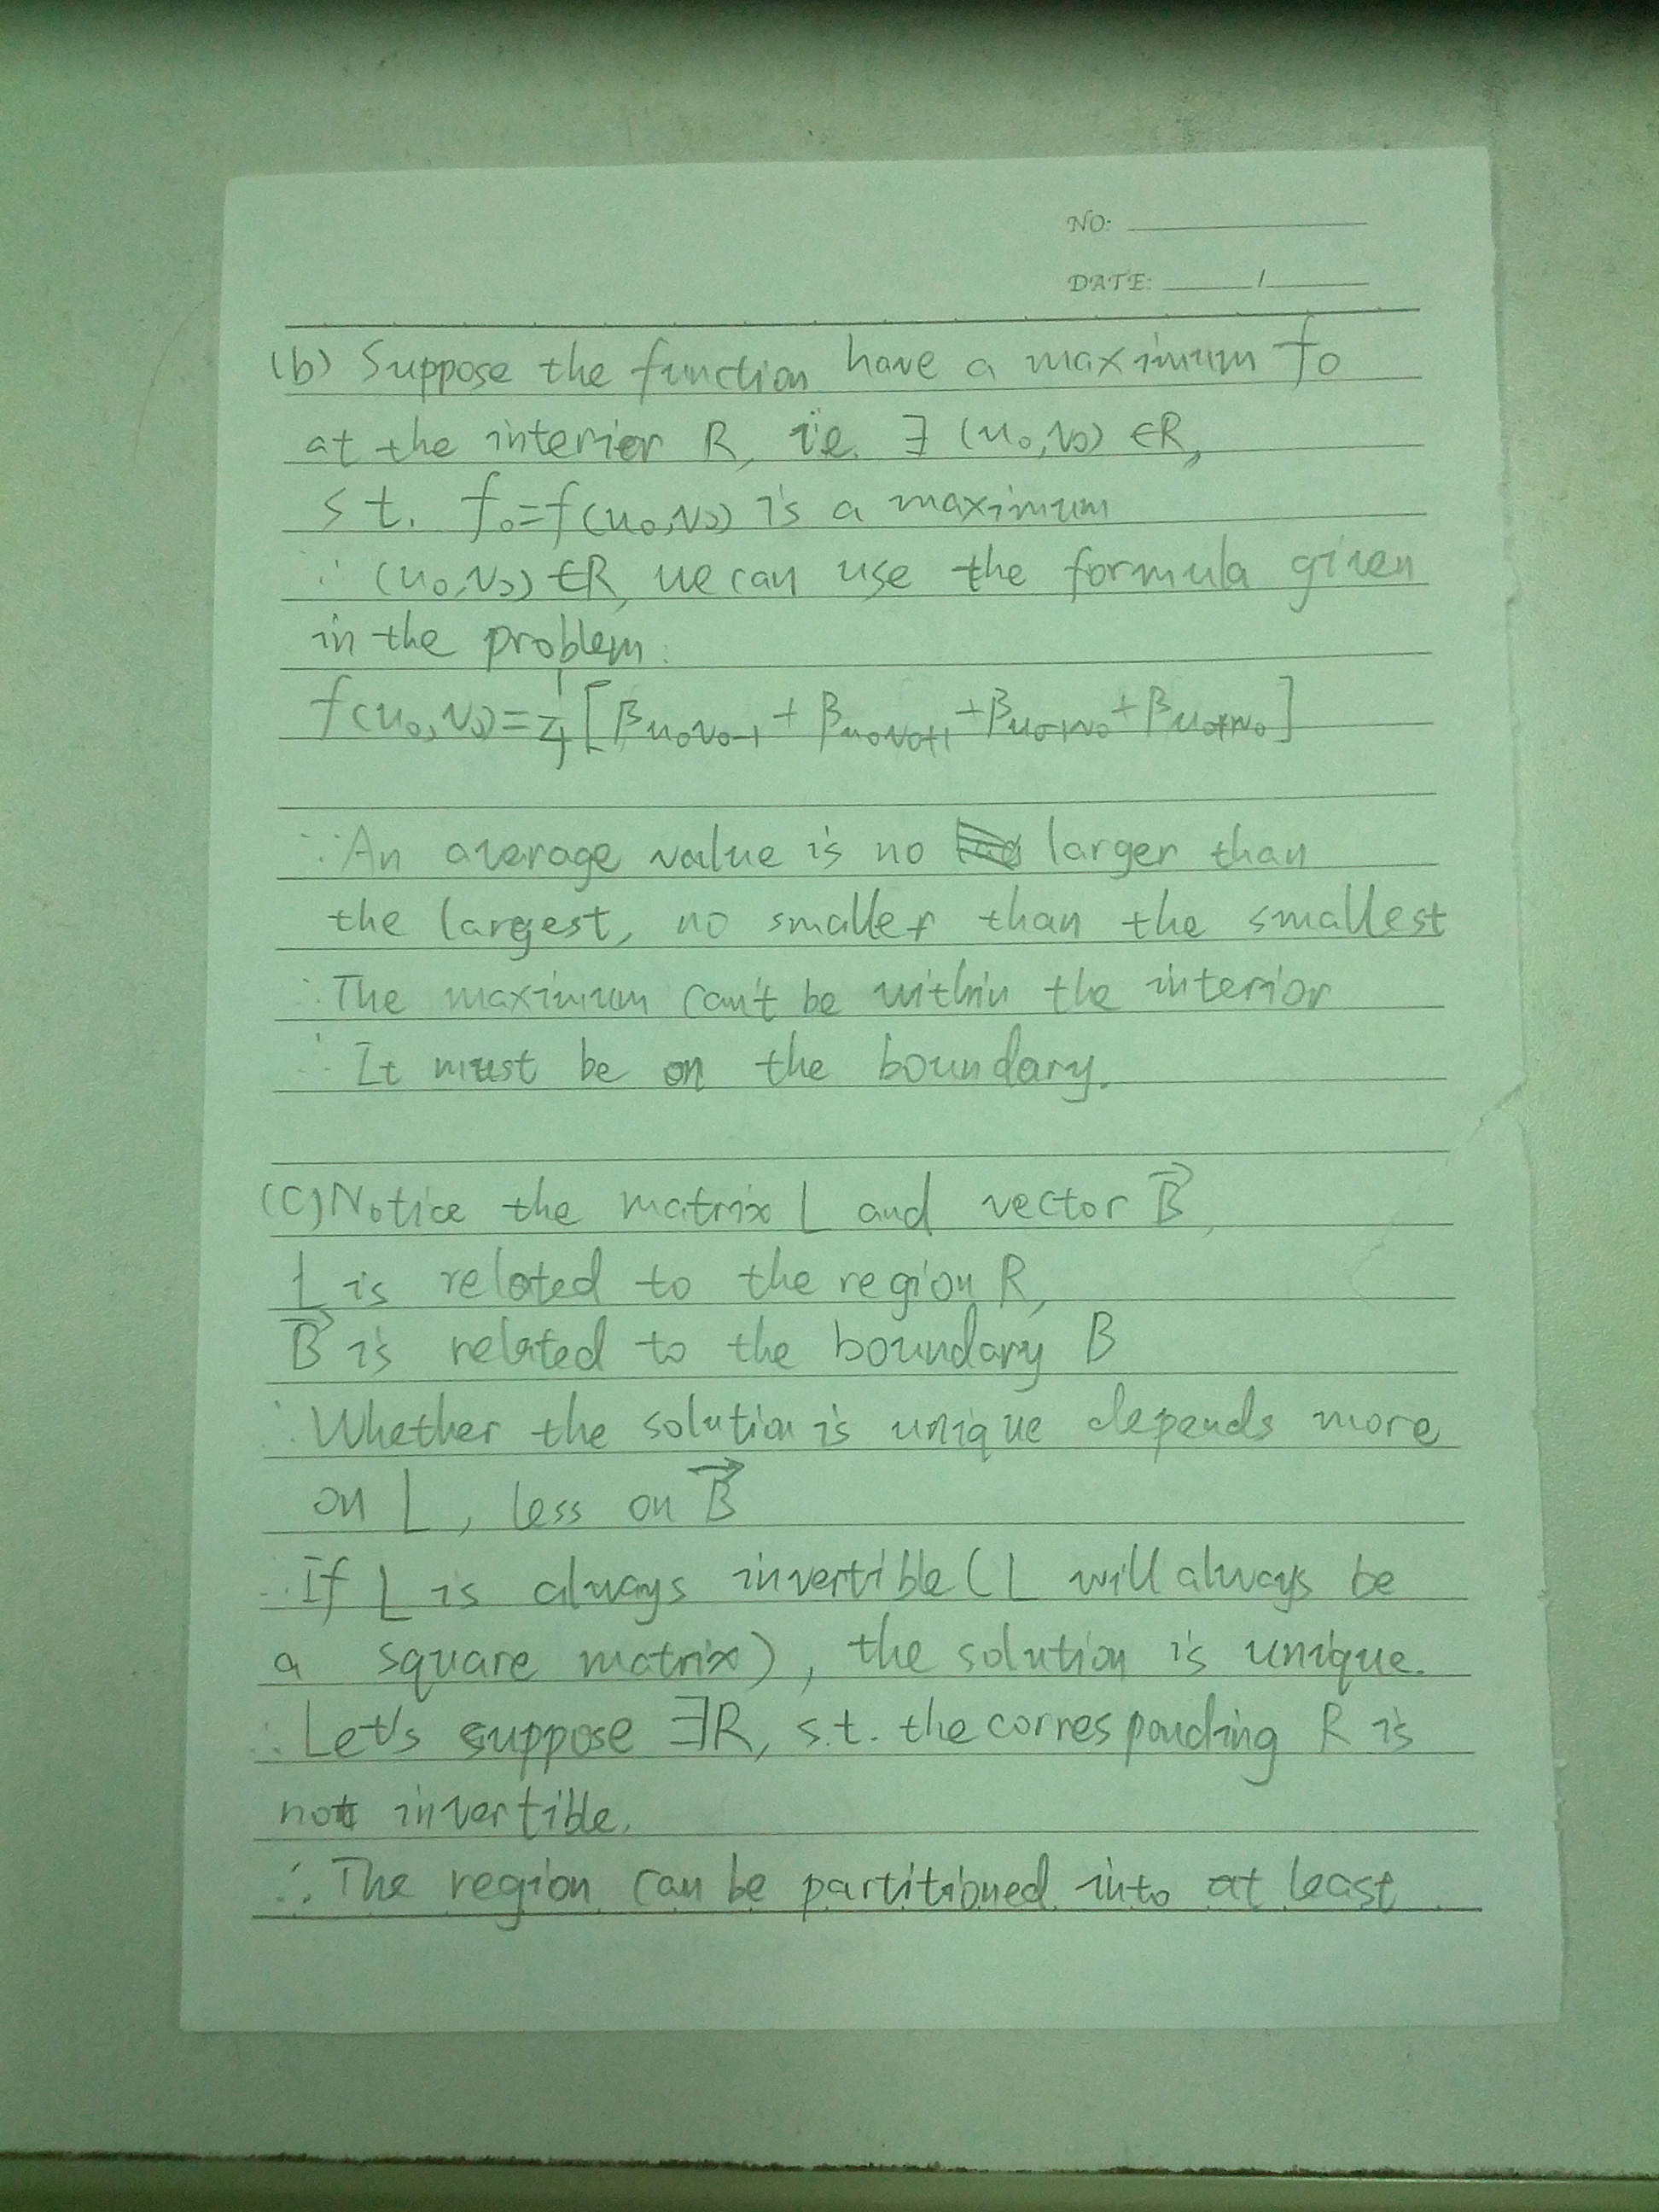 NO:
DATE: /
(b) Suppose the function have a maximum f₀
at the interior R, i.e. ∃ (u₀,v₀) ∈R,
s t. f₀=f(u₀,v₀) is a maximum
∵ (u₀,v₀) ∈R, we can use the formula given
in the problem:
f(u₀,v₀)=1/4[βu₀v₀-1 + βu₀v₀+1 +βu₀-1v₀ + βu₀+1v₀]
∵ An average value is no larger than
the largest, no smaller than the smallest
∴ The maximum can't be within the interior
∴ It must be on the boundary.
(C) Notice the matrix L and vector B⃗,
L is related to the region R,
B⃗ is related to the boundary B
∴ Whether the solution is unique depends more
on L, less on B⃗
∴ If L is always invertible (L will always be
a square matrix), the solution is unique.
∴ Let's suppose ∃R, s.t. the corresponding R is
not invertible.
∴ The region can be partitioned into at least